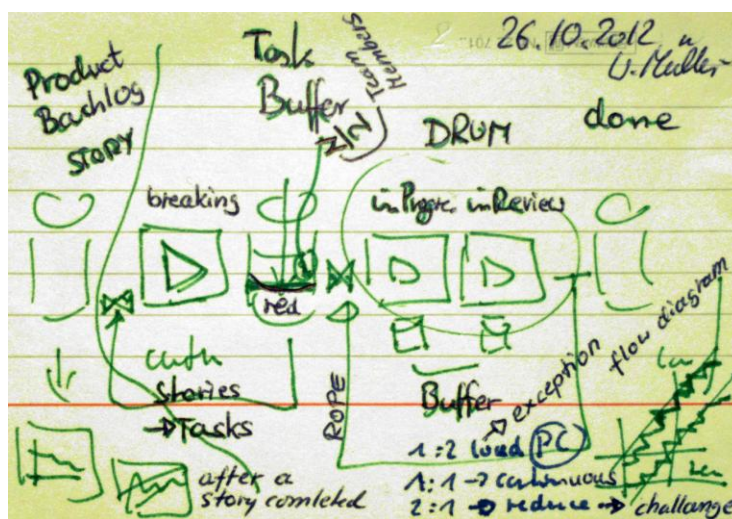 26.10.2012
Product
Backlog
STORY
Task
Buffer
Team
Members
DRUM
done
breaking
in Progre. in Review
red
Stories
→ Tasks
ROPE
Buffer
exception
flow diagram
1:2 load PC
1:1 → continuous
2:1 → reduce → challange
after a
story comleted